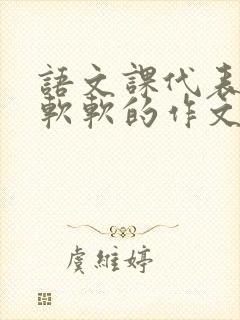 語文課代表
軟軟的作文
虞維婷